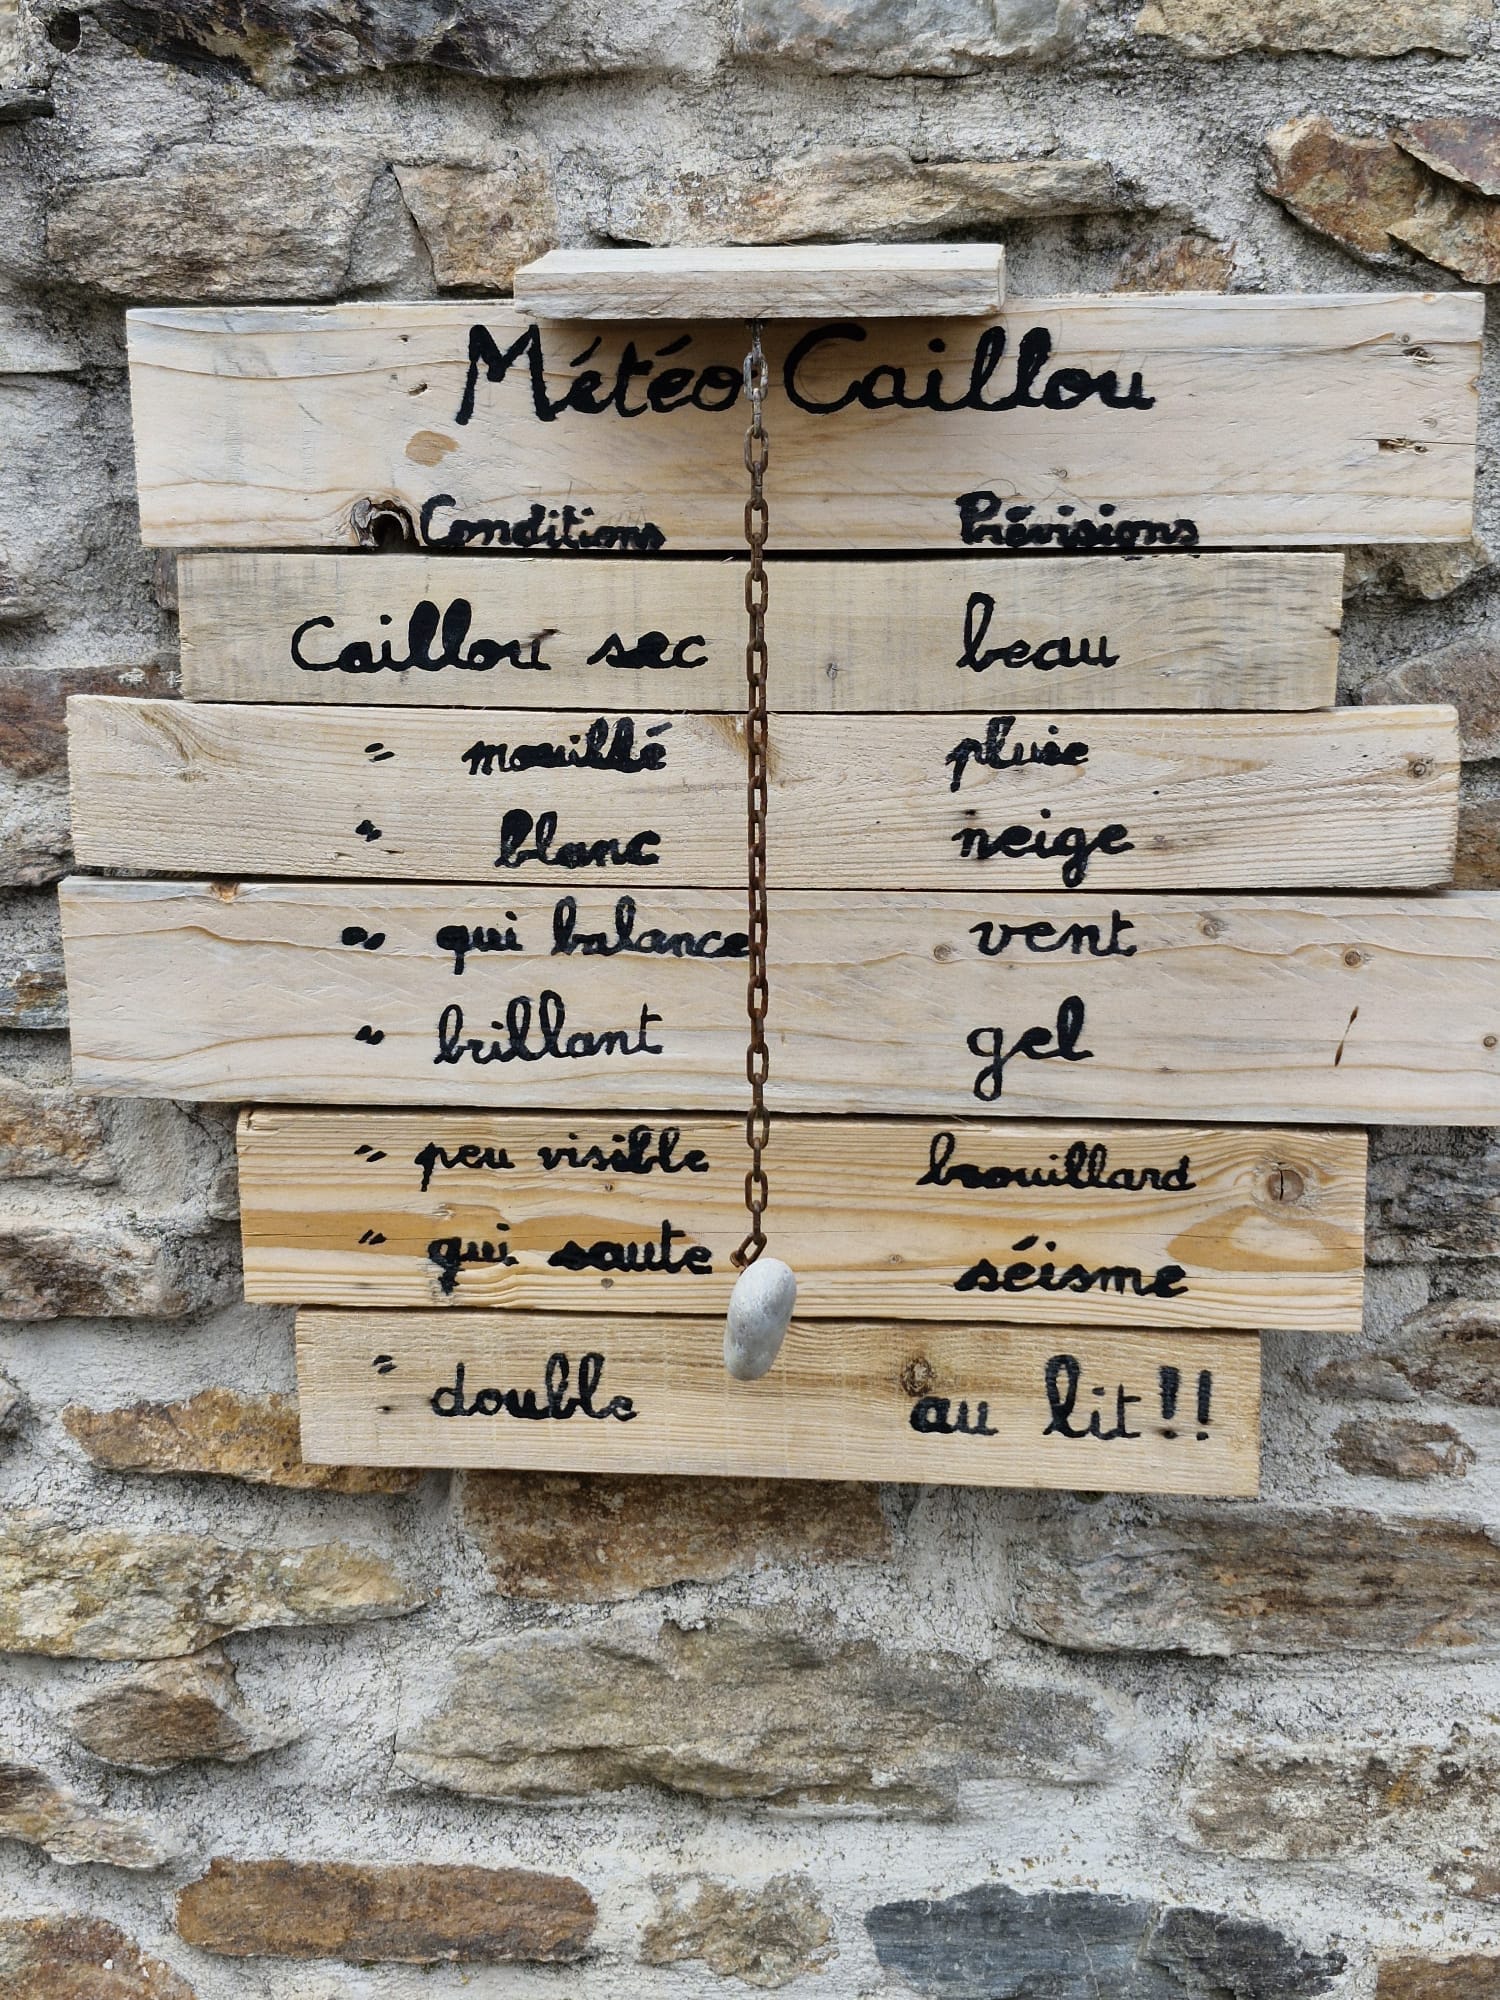 Météo Caillou
Conditions Prévisions
Caillou sec beau
" mouillé pluie
" blanc neige
" qui balance vent
" brillant gel
" peu visible brouillard
" qui saute séisme
" double au lit!!